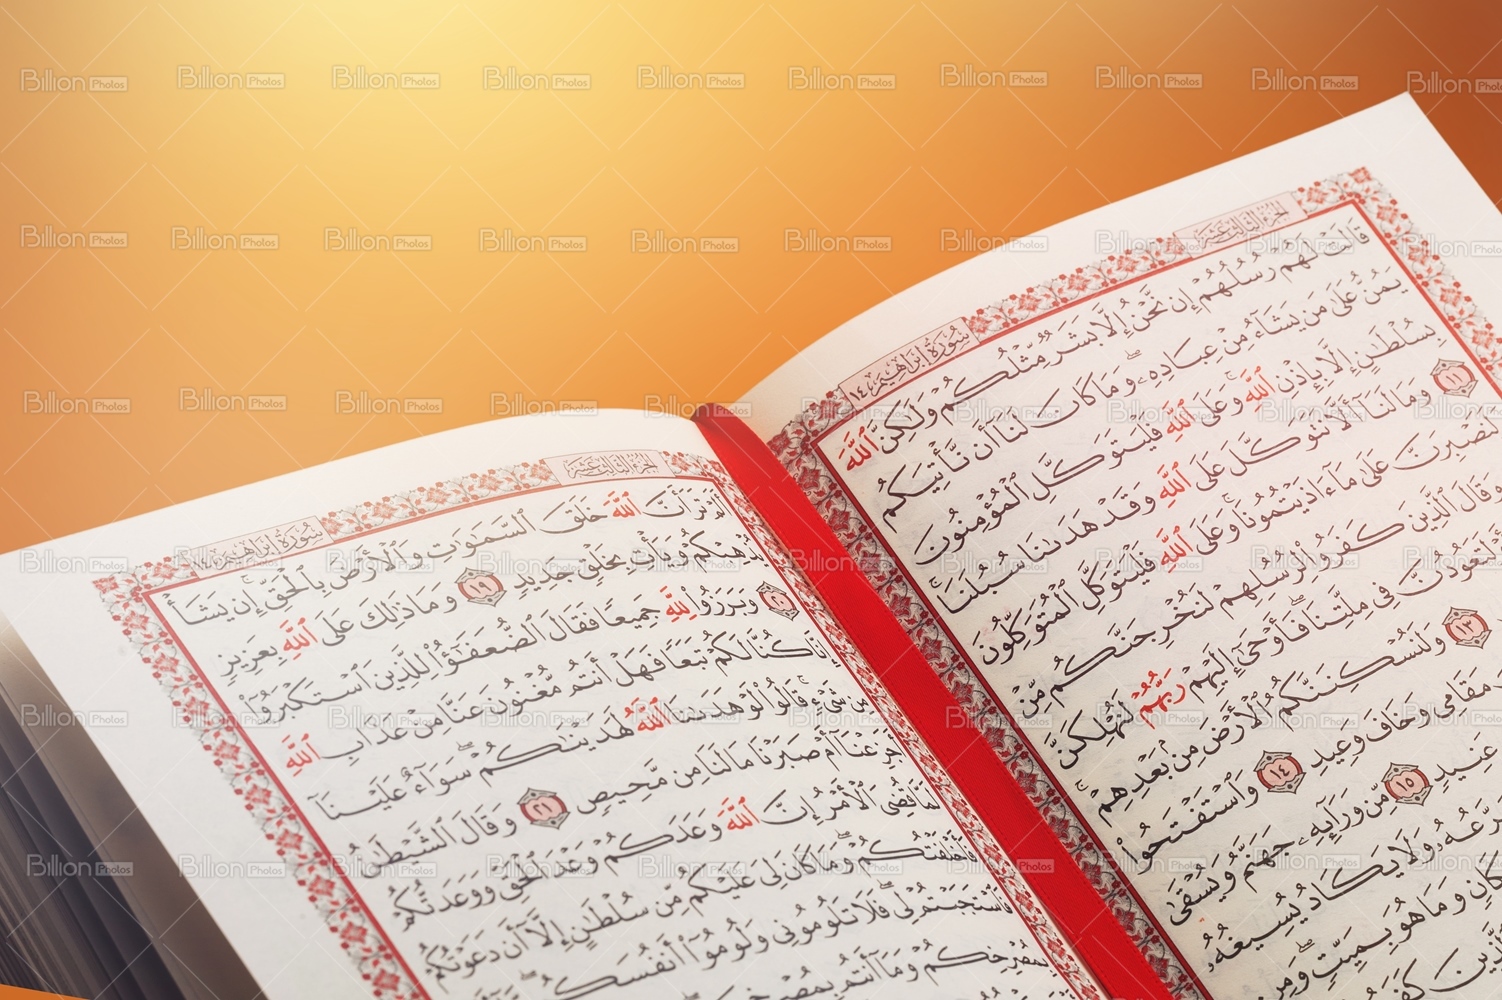 الجزء الثالث عشر
سورة إبراهيم ١٤
قَالَتْ لَهُمْ رُسُلُهُمْ إِن نَّحْنُ إِلَّا بَشَرٌ مِّثْلُكُمْ وَلَٰكِنَّ ٱللَّهَ
يَمُنُّ عَلَىٰ مَن يَشَآءُ مِنْ عِبَادِهِۦ ۖ وَمَا كَانَ لَنَآ أَن نَّأْتِيَكُم
بِسُلْطَٰنٍ إِلَّا بِإِذْنِ ٱللَّهِ ۚ وَعَلَى ٱللَّهِ فَلْيَتَوَكَّلِ ٱلْمُؤْمِنُونَ
١١ وَمَا لَنَآ أَلَّا نَتَوَكَّلَ عَلَى ٱللَّهِ وَقَدْ هَدَىٰنَا سُبُلَنَا ۚ
وَلَنَصْبِرَنَّ عَلَىٰ مَآ ءَاذَيْتُمُونَا ۚ وَعَلَى ٱللَّهِ فَلْيَتَوَكَّلِ ٱلْمُتَوَكِّلُونَ
وَقَالَ ٱلَّذِينَ كَفَرُوا۟ لِرُسُلِهِمْ لَنُخْرِجَنَّكُم مِّنْ
لَتَعُودُنَّ فِى مِلَّتِنَا ۖ فَأَوْحَىٰٓ إِلَيْهِمْ رَبُّهُمْ لَنُهْلِكَنَّ
١٣ وَلَنُسْكِنَنَّكُمُ ٱلْأَرْضَ مِنۢ بَعْدِهِمْ ۚ
مَقَامِى وَخَافَ وَعِيدِ ١٤ وَٱسْتَفْتَحُوا۟
عَنِيدٍ ١٥ مِّن وَرَآئِهِۦ جَهَنَّمُ وَيُسْقَىٰ
وَلَا يَكَادُ يُسِيغُهُۥ
مَكَانٍ وَمَا هُوَ بِمَيِّتٍ ۖ وَمِن
الجزء الثالث عشر
سورة إبراهيم ١٤
أَلَمْ تَرَ أَنَّ ٱللَّهَ خَلَقَ ٱلسَّمَٰوَٰتِ وَٱلْأَرْضَ بِٱلْحَقِّ ۚ إِن يَشَأْ
يُذْهِبْكُمْ وَيَأْتِ بِخَلْقٍ جَدِيدٍ ١٩ وَمَا ذَٰلِكَ عَلَى ٱللَّهِ بِعَزِيزٍ
٢٠ وَبَرَزُوا۟ لِلَّهِ جَمِيعًا فَقَالَ ٱلضُّعَفَٰٓؤُا۟ لِلَّذِينَ ٱسْتَكْبَرُوٓا۟
إِنَّا كُنَّا لَكُمْ تَبَعًا فَهَلْ أَنتُم مُّغْنُونَ عَنَّا مِنْ عَذَابِ ٱللَّهِ
مِن شَىْءٍ ۚ قَالُوا۟ لَوْ هَدَىٰنَا ٱللَّهُ لَهَدَيْنَٰكُمْ ۖ سَوَآءٌ عَلَيْنَآ
أَجَزِعْنَآ أَمْ صَبَرْنَا مَا لَنَا مِن مَّحِيصٍ ٢١ وَقَالَ ٱلشَّيْطَٰنُ
لَمَّا قُضِىَ ٱلْأَمْرُ إِنَّ ٱللَّهَ وَعَدَكُمْ وَعْدَ ٱلْحَقِّ وَوَعَدتُّكُمْ
فَأَخْلَفْتُكُمْ ۖ وَمَا كَانَ لِىَ عَلَيْكُم مِّن سُلْطَٰنٍ إِلَّآ أَن دَعَوْتُكُمْ
فَٱسْتَجَبْتُمْ لِى ۖ فَلَا تَلُومُونِى وَلُومُوٓا۟ أَنفُسَكُم ۖ
بِمُصْرِخِكُمْ وَمَآ أَنتُم بِمُصْرِخِىَّ
Billion Photos